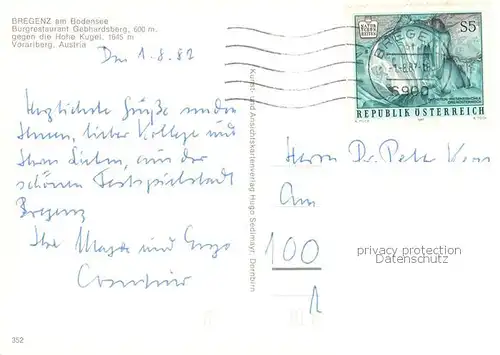 BREGENZ am Bodensee
Burgrestaurant Gebhardsberg, 600 m.
gegen die Hohe Kugel, 1645 m
Vorarlberg, Austria
1.8.82
Herzlichste Grüße senden
Ihnen, lieber Kollege und
Ihren Lieben, aus der
schönen Festspielstadt
Bregenz
Ihre und
Kunst- und Ansichtskartenverlag Hugo Sedlmayr, Dornbirn
BREGENZ
6900
S5
REPUBLIK ÖSTERREICH
Herrn Dr. Peter
Am
100
privacy protection
Datenschutz
352